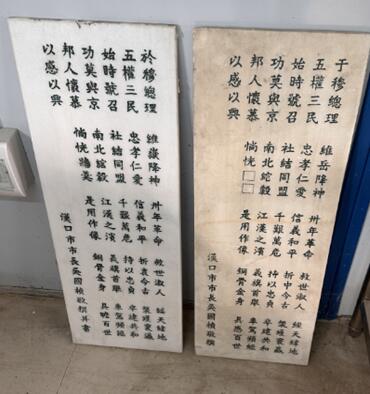 於穆總理 維嶽降神 卅年革命 救世淑人 經天緯地
五權三民 忠孝仁愛 信義和平 折衷今古
始時號召 社結同盟 千艱萬危 持以忠貞 卒建共和
功莫與京 南北綰轂 江漢之濱 義旗首舉 車駕頻經
邦人懷慕 倘恍牆羹 是用作像 銅骨金身 具瞻百世
以感以興
漢口市市長吳國楨敬撰并書
于穆總理 維岳降神 卅年革命 救世淑人 經天緯地
五權三民 忠孝仁愛 信義和平 折中今古
始時號召 社結同盟 千艱萬危 持以忠貞 卒建共和
功莫與京 南北綰轂 江漢之濱 義旗首舉 車駕頻經
邦人懷慕 倘恍□□ 是用作像 銅骨金身 具感百世
以感以興
漢口市市長吳國楨敬撰